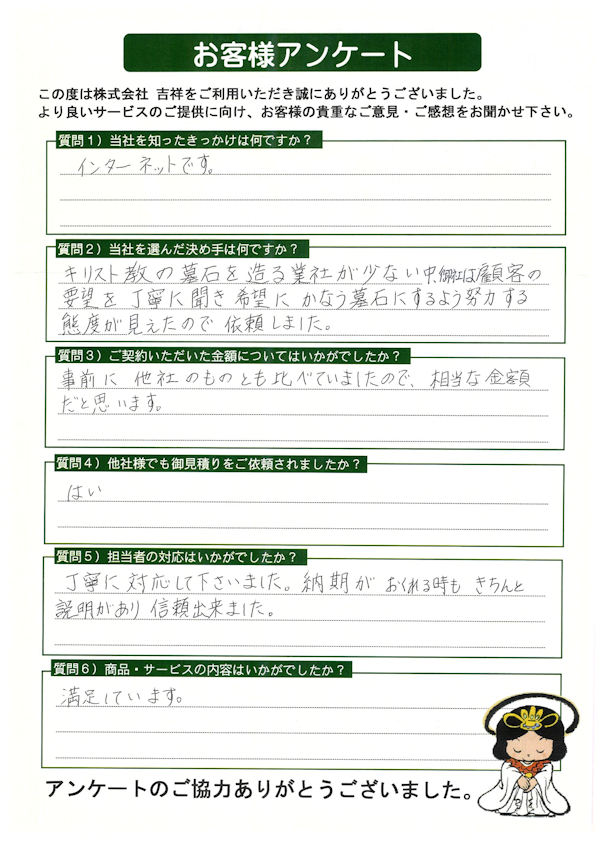 お客様アンケート
この度は株式会社 吉祥をご利用いただき誠にありがとうございました。
より良いサービスのご提供に向け、お客様の貴重なご意見・ご感想をお聞かせ下さい。
質問1）当社を知ったきっかけは何ですか？
インターネットです。
質問2）当社を選んだ決め手は何ですか？
キリスト教の墓石を造る業社が少ない中、御社は顧客の
要望を丁寧に聞き希望にかなう墓石にするよう努力する
態度が見えたので依頼しました。
質問3）ご契約いただいた金額についてはいかがでしたか？
事前に他社のものとも比べていましたので、相当な金額
だと思います。
質問4）他社様でも御見積りをご依頼されましたか？
はい
質問5）担当者の対応はいかがでしたか？
丁寧に対応して下さいました。納期がおくれる時もきちんと
説明があり信頼出来ました。
質問6）商品・サービスの内容はいかがでしたか？
満足しています。
アンケートのご協力ありがとうございました。